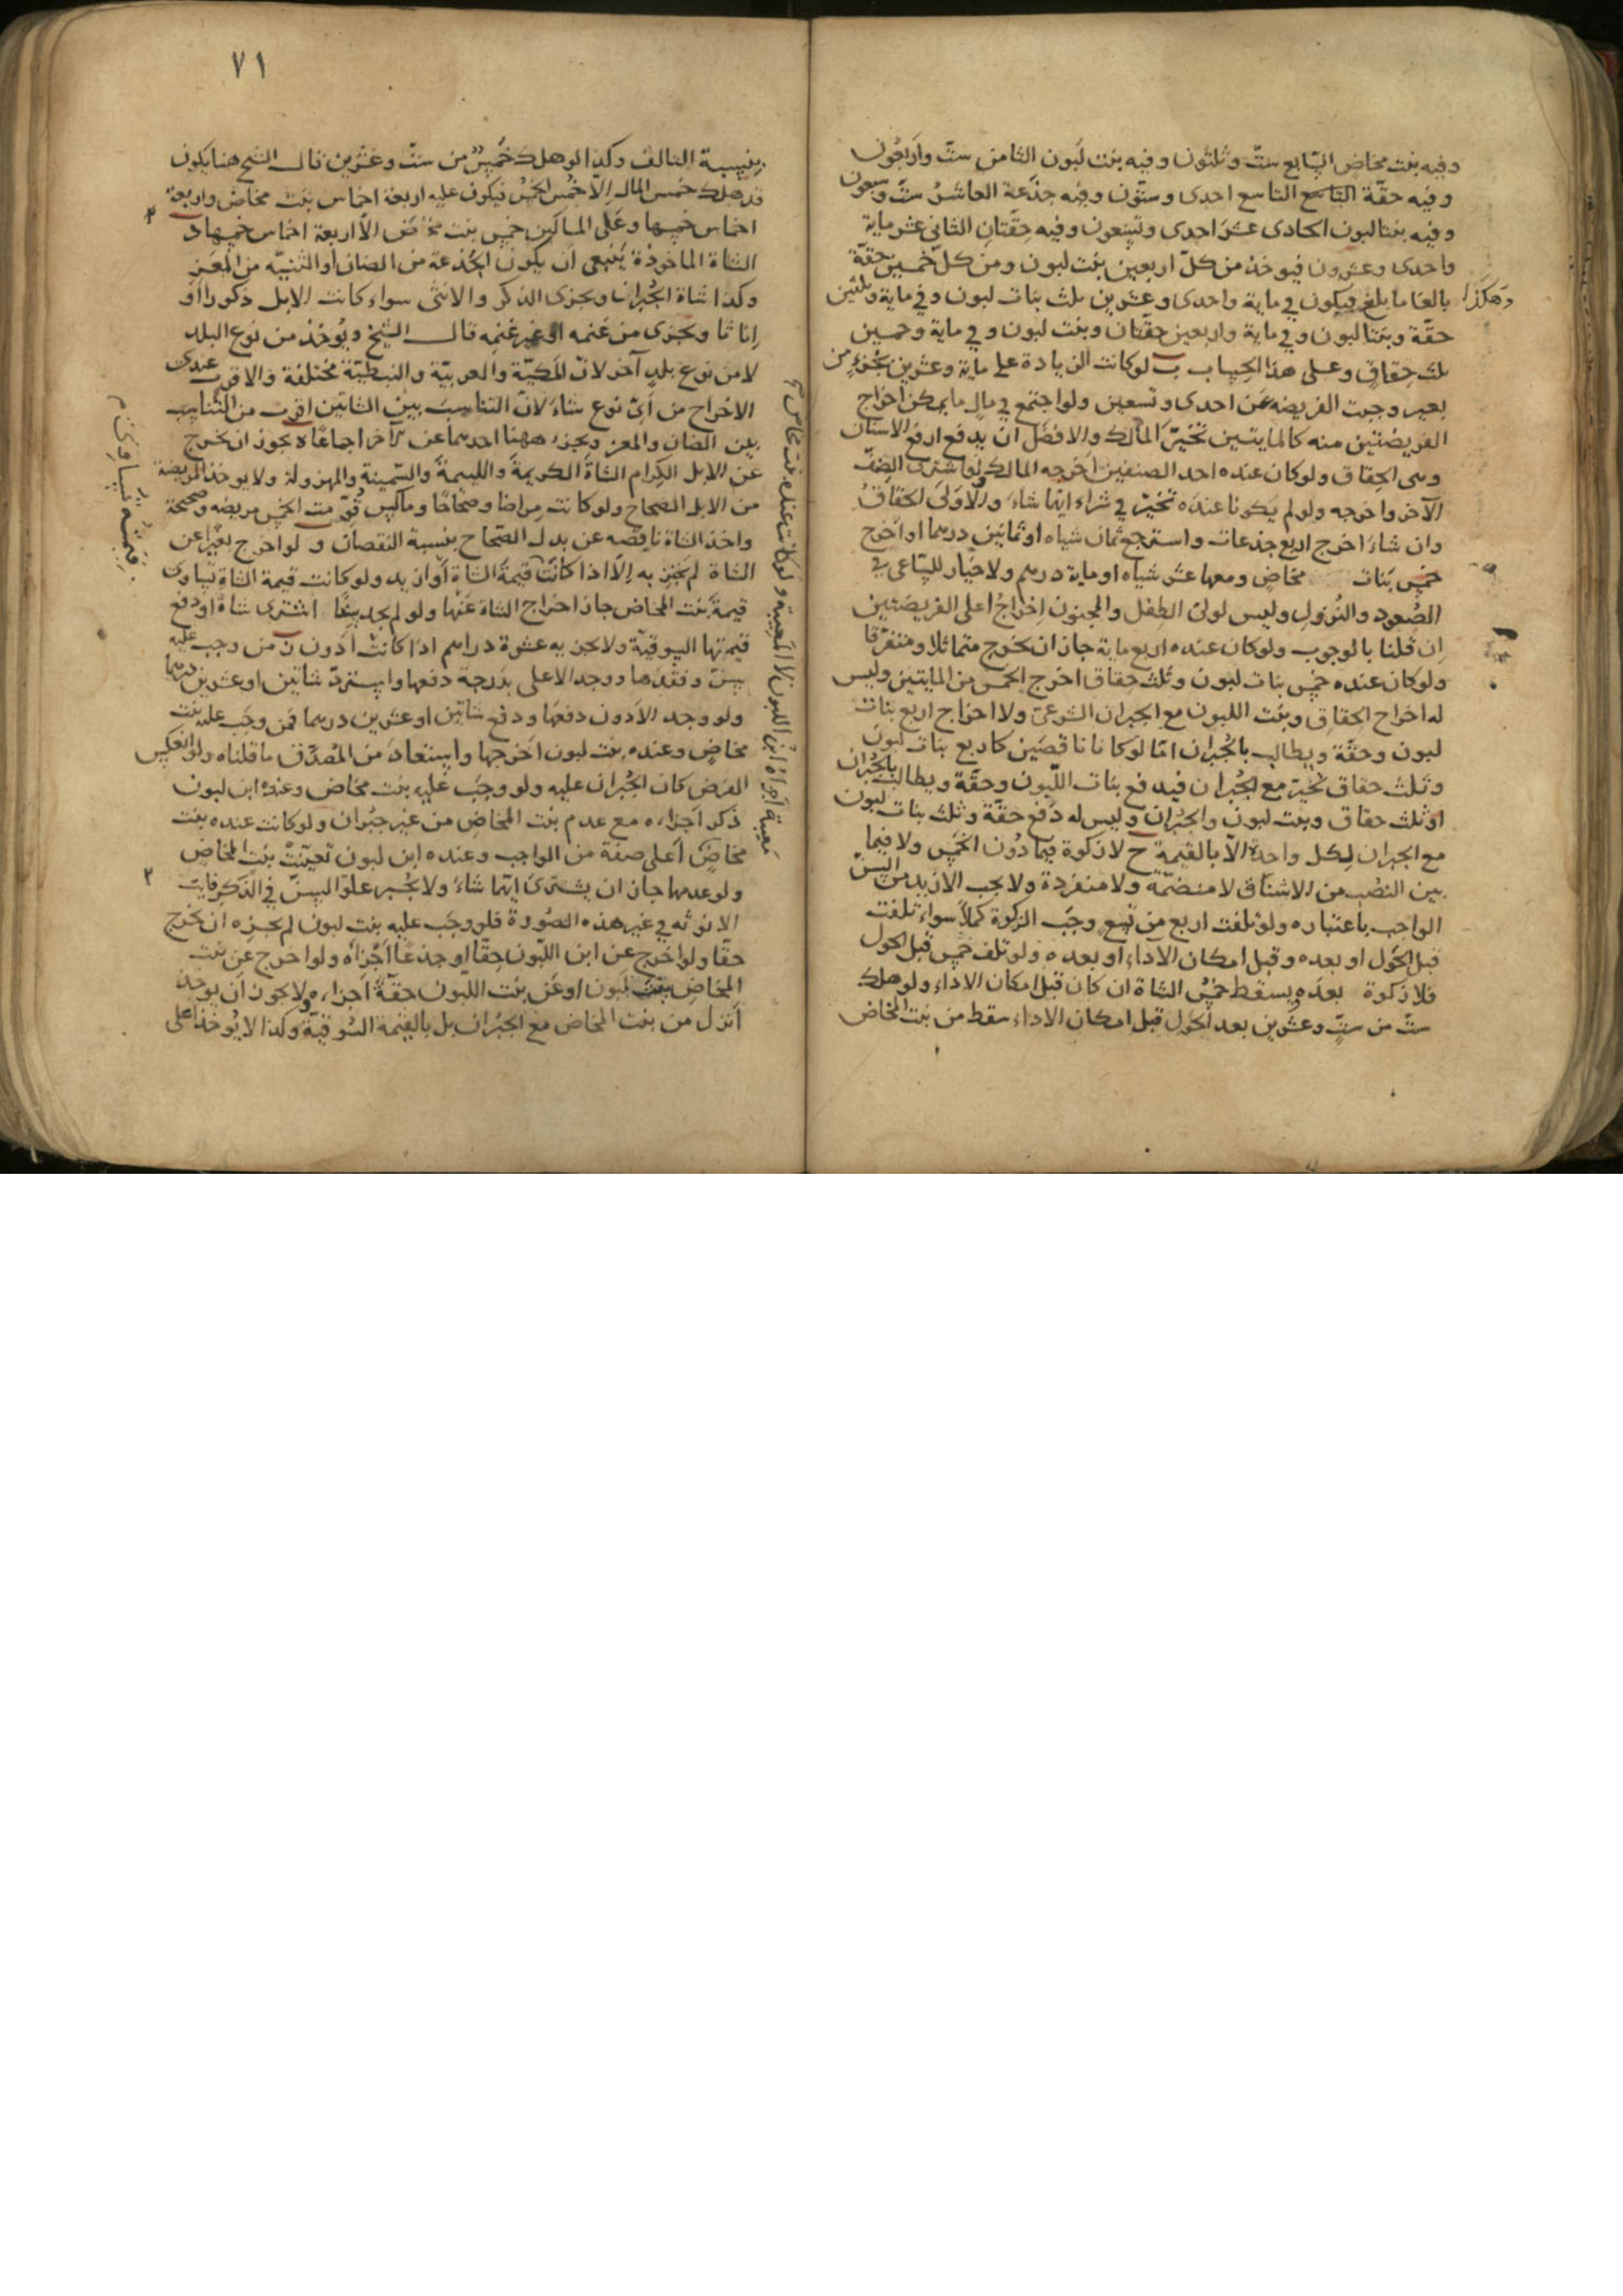 وفيه بنت مخاض السّابع ستّ وثلثون وفيه بنت لبون الثامن ستّ واربعون
وفيه حقّة التاسع احدى وستّون وفيه جذعة العاشر ستّ وسبعون
وفيه بنتا لبون الحادى عشر احدى وتسعون وفيه حقتان الثانى عشر ماية
واحدى وعشرون فيوخذ من كلّ اربعين بنت لبون ومن كلّ خمسين حقّة
وهكذا بالغا ما بلغ فيكون فى ماية واحدى وعشرين ثلث بنات لبون وفى ماية وثلثين
حقّة وبنتا لبون وفى ماية واربعين حقّتان وبنت لبون وفى ماية وخمسين
ثلث حقاق وعلى هذا الحساب ب لو كانت الزيادة على ماية وعشرين بجزء من
بعير وجبت الفريضه من احدى وتسعين ولو اجتمع فى مال ما يمكن اخراج
الفريضتين منه كالمايتين تخيّر المالك والافضل ان يدفع ارفع الاسنان
وهى الحقاق ولو كان عنده احد الصنفين اخرجه المالك ولو اشترى الصنف
الآخر واخرجه ولو لم يكونا عنده تخيّر فى شراء ايّهما شاء والاولى الحقاق
وان شاء اخرج اربع جذعات واسترجع ثمان شياه او ثمانين درهما او اخرج
خمس بنات مخاض ومعها عشر شياه او ماية درهم ولا خيار للسّاعى فى
الصعود والنزول وليس لولىّ الطفل والمجنون اخراج اعلى الفريضتين
ان قلنا بالوجوب ولو كان عنده اربع ماية جاز ان يخرج متماثلا ومتفرقا
ولو كان عنده خمس بنات لبون وثلث حقاق اخرج الخمس من المايتين وليس
له اخراج الحقاق وبنت اللبون مع الجبران الشرعىّ ولا اخراج اربع بنات
لبون وحقّة ويطالب بالجبران امّا لو كانا ناقصين كاربع بنات لبون
وثلث حقاق تخيّر مع الجبران فيدفع بنات اللبون وحقّة ويطالب بالجبران
او ثلث حقاق وبنت لبون والجبران وليس له دفع حقّة وثلث بنات لبون
مع الجبران لكل واحدة الّا بالقيمة ج لا زكوة فيما دون الخمس ولا فيما
بين النصب من الاشناق لا منضمّة ولا منفردة ولا يجب الازيد من السنّ
الواجب باعتباره ولو تلفت اربع من تسع وجب الزكوة كملا سواء تلفت
قبل الحول او بعده وقبل امكان الاداء او بعده ولو تلف خمس قبل الحول
فلا زكوة بعده ويسقط خمس الشاة ان كان قبل امكان الاداء ولو هلك
ستّ من ستّ وعشرين بعد الحول قبل امكان الاداء سقط من بنت المخاض
٧١
بنسبة التالف وكذا لو هلك خمس من ستّ وعشرين قال الشيخ هنا يكون
قد هلك خمس المال الّا خمس الخمس فيكون عليه اربعة اخماس بنت مخاض واربعة
اخماس خمسها وعلى المساكين خمس بنت مخاض الّا اربعة اخماس خمسها د
الشاة الماخوذة ينبغى ان يكون الجذعة من الضان او الثنيّة من المعز
وكذا شاة الجبران ويجزى الذكر والانثى سواء كانت الابل ذكورا او
اناثا ويجزى من غنمه او غير غنمه قال الشيخ ويؤخذ من نوع البلد
لا من نوع بلد آخر لانّ المكيّة والعربيّة والنبطيّة مختلفة والاقرب عندى
الاخراج من اىّ نوع شاء لانّ التناسب بين الشاتين اقرب من التناسب
بين الضان والمعز ويجزء ههنا احدهما عن الآخر اجماعا ه يجوز ان يخرج
عن الابل الكرام الشاة الكريمة واللئيمة والسّمينة والمهزولة ولا يوخذ المريضة
من الابل الصحاح ولو كانت مراضا وصحاحا وماكس قوّمت الخمس مريضه وصحيحة
واخذ الشاة ناقصه عن بدل الصحاح بنسبة النقصان و لو اخرج بعيرا عن
الشاة لم يجز به الّا اذا كانت قيمة الشاة او ازيد ولو كانت قيمة الشاة تساوى
قيمة بنت المخاض جاز اخراج الشاة عنها ولو لم يجد سنّا اشترى شاة او دفع
قيمتها السوقيّة ولا يجزيه عشرة دراهم اذا كانت ادون ز من وجب عليه
سنّ وفقدها ووجد الاعلى بدرجة دفعها واستردّ شاتين او عشرين درهما
ولو وجد الادون دفعها ودفع شاتين او عشرين درهما فمن وجب عليه بنت
مخاض وعنده بنت لبون اخرجها واستعاد من المصدّق ما قلناه ولو انعكس
الفرض كان الجبران عليه ولو وجب عليه بنت مخاض وعنده ابن لبون
ذكر اجزاءه مع عدم بنت المخاض من غير جبران ولو كانت عنده بنت
مخاض اعلى صفة من الواجب وعنده ابن لبون تعيّنت بنت المخاض
ولو عدمها جاز ان يشترى ايّهما شاء ولا يجبر علوّ السنّ فى الذكر فايت
الانوثه فى غير هذه الصورة فلو وجب عليه بنت لبون لم يجزه ان يخرج
حقّا ولو اخرج عن ابن اللبون حقّا او جذعا اجزاه ولو اخرج عن بنت
المخاض بنت لبون او عن بنت اللبون حقّة اجزاءه ولا يجوز ان يوخذ
انزل من بنت المخاض مع الجبران بل بالقيمة السوقيّة وكذا لا يؤخذ اعلى
ولو كانت عنده بنت مخاض معيبة اجزاه ابن اللبون لا المعيبة
قيمته تساوى